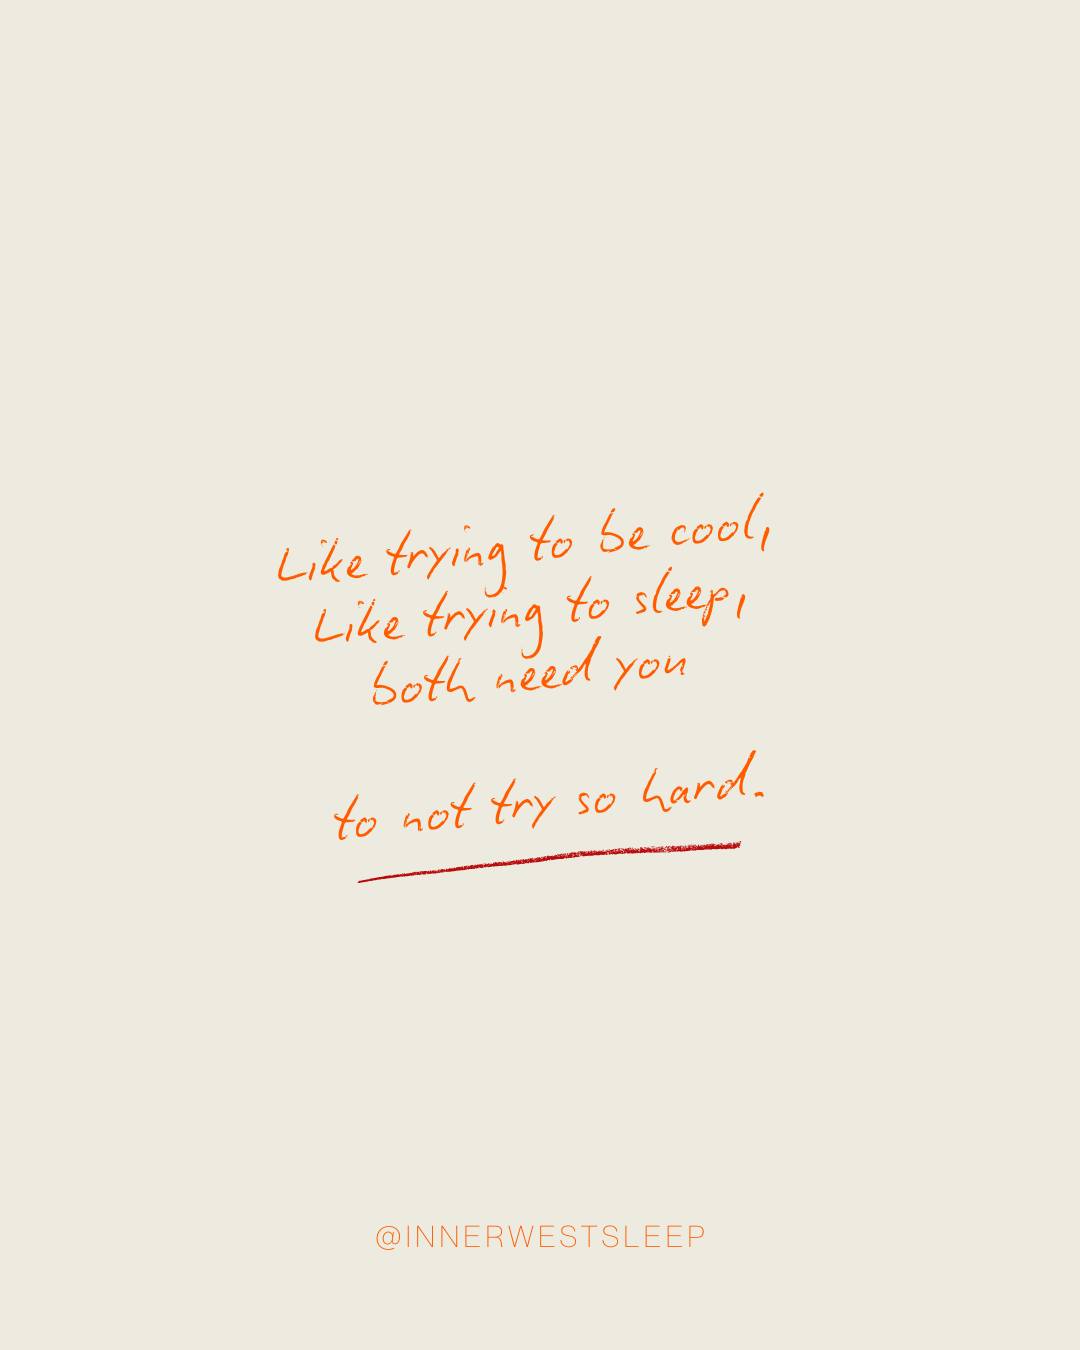 Like trying to be cool,
Like trying to sleep,
both need you
to not try so hard.
@INNERWESTSLEEP